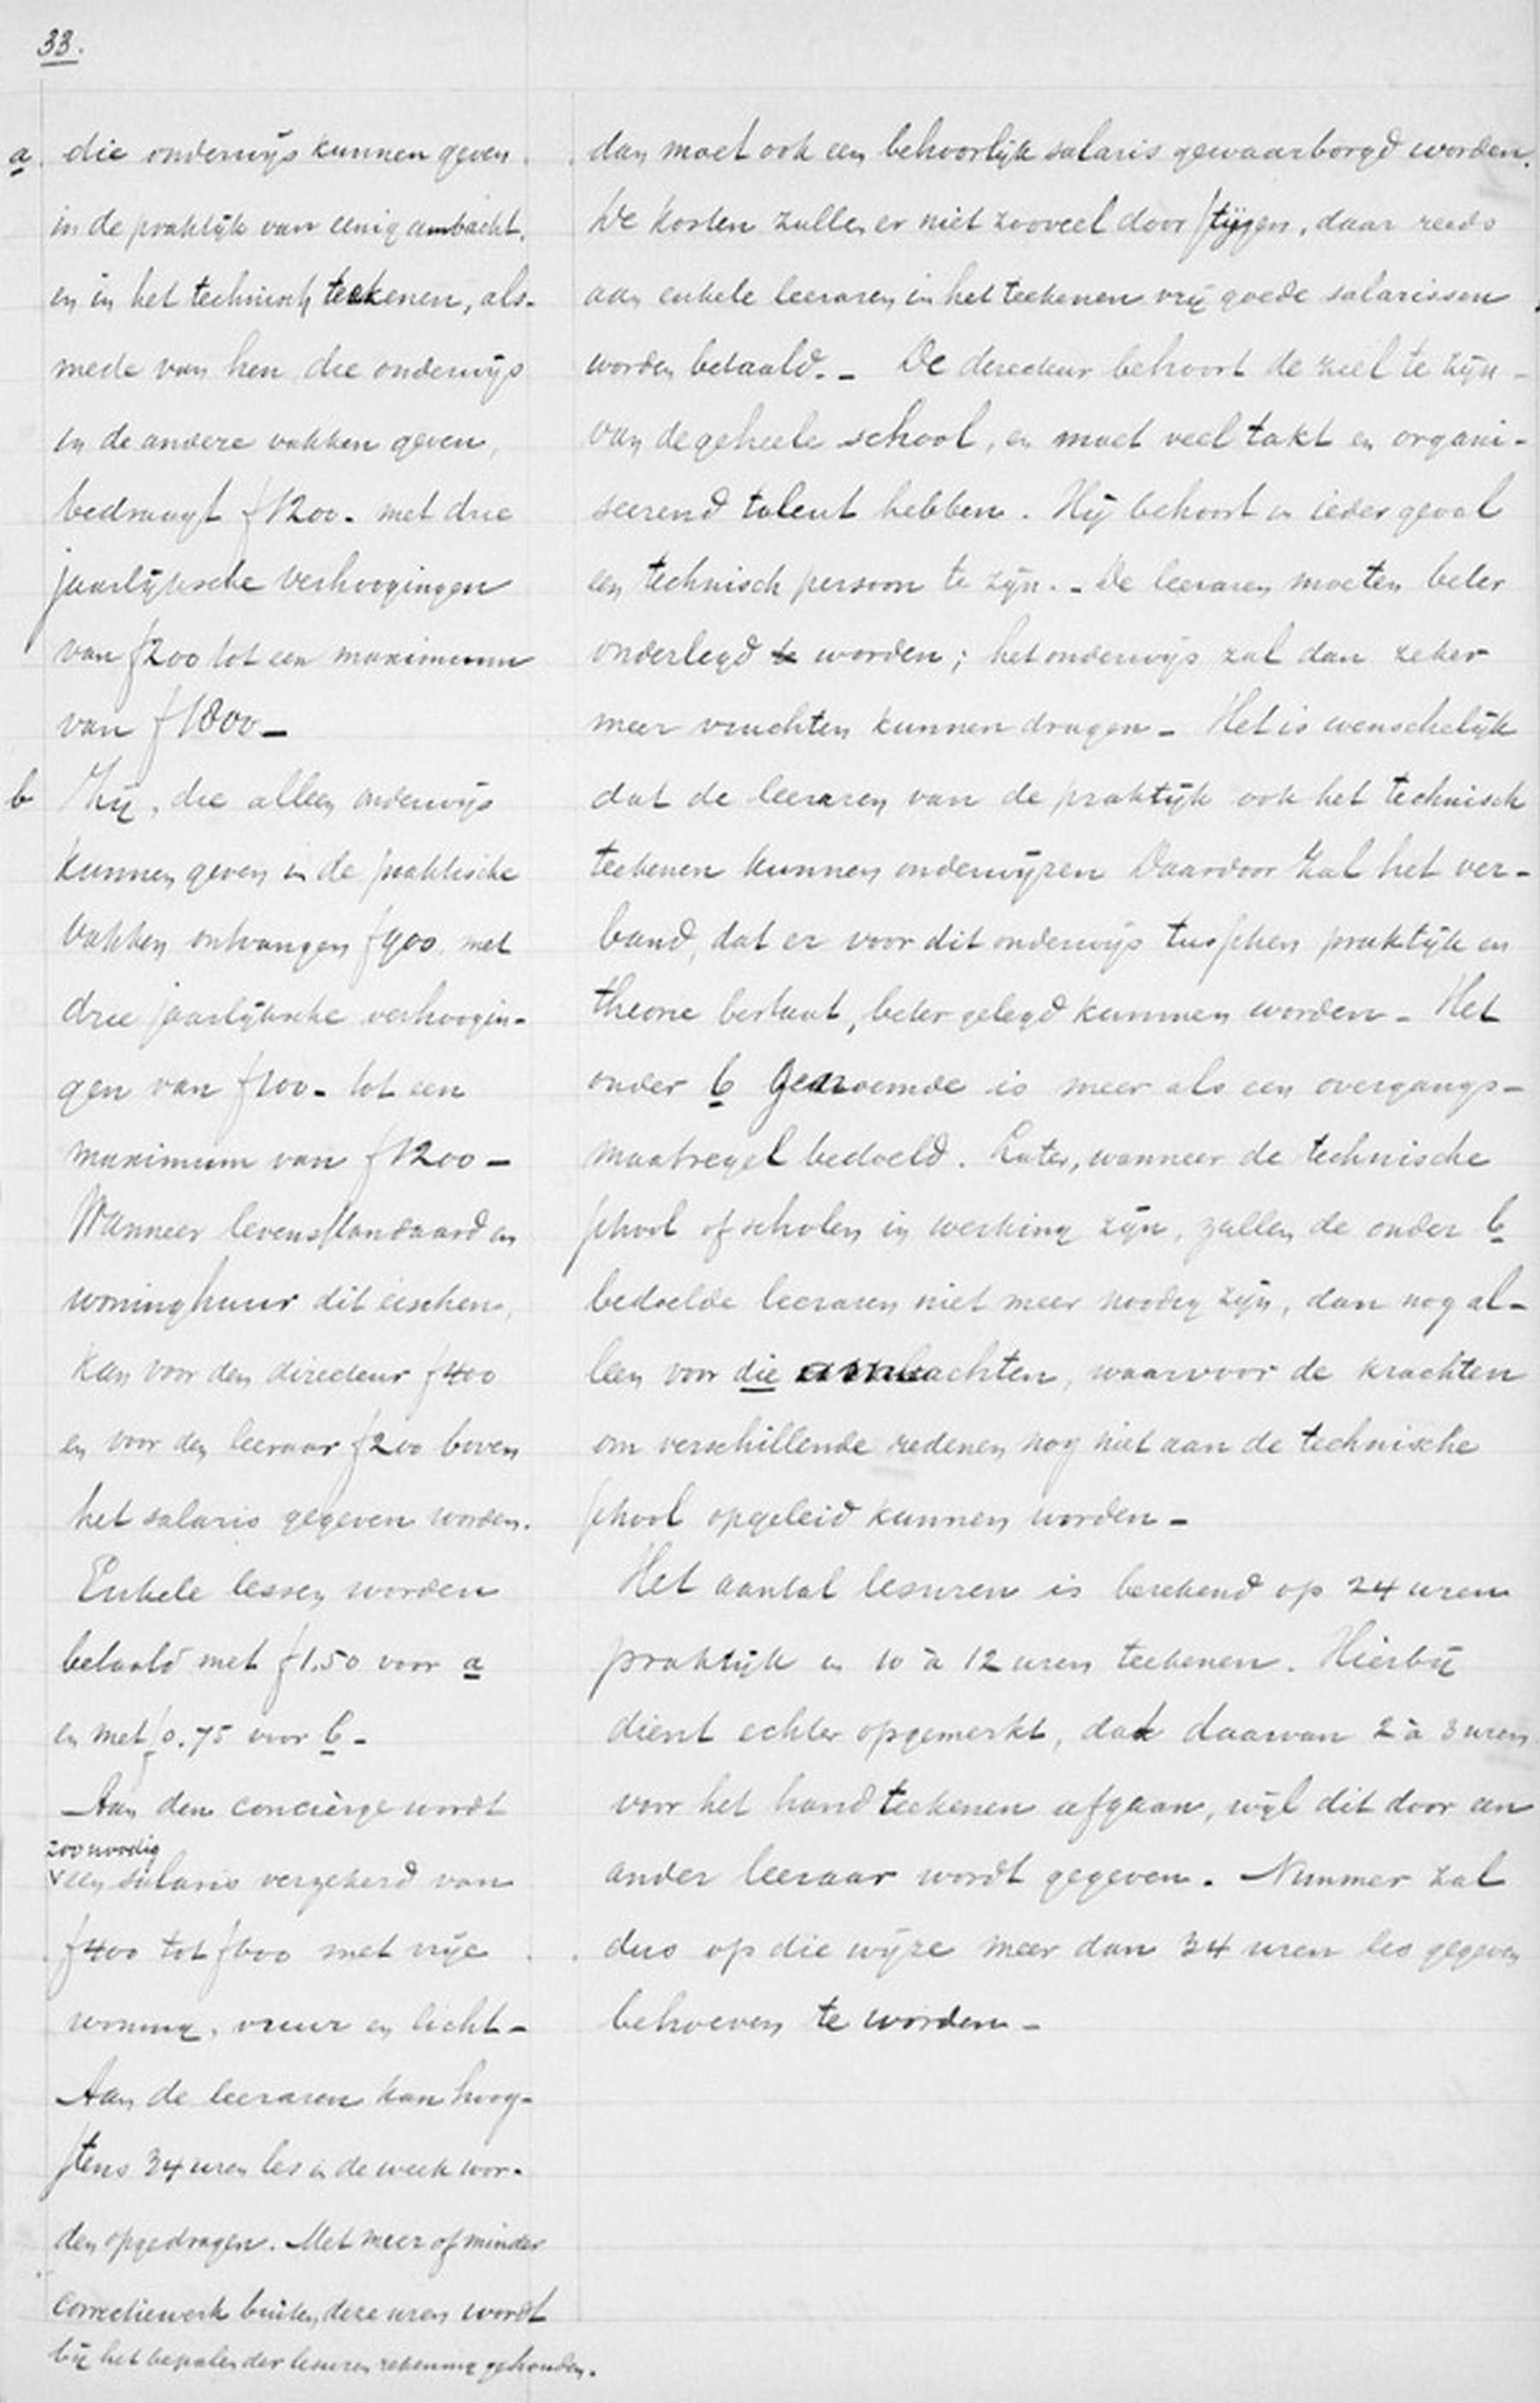 33.
a. die onderwijs kunnen geven
in de praktijk van eenig ambacht,
en in het technisch teekenen, als-
mede van hen die onderwijs
in de andere vakken geven,
bedraagt f1200.- met drie
jaarlijksche verhoogingen
van f200 tot een maximum
van f1800 -
b Zij, die alleen onderwijs
kunnen geven in de praktische
vakken ontvangen f900 met
drie jaarlijksche verhoogin-
gen van f100.- tot een
maximum van f1200 -
Wanneer levensstandaard en
woninghuur dit eischen,
kan voor den directeur f400
en voor den leeraar f200 boven
het salaris gegeven worden.
Enkele lessen worden
betaald met f1.50 voor a
en met f0.75 voor b -
Aan den concièrge wordt
zoo noodig
een salaris verzekerd van
f400 tot f600 met vrije
woning, vuur en licht -
Aan de leeraren kan hoog-
stens 34 uren les in de week wor-
den opgedragen. Met meer of minder
correctiewerk buiten deze uren wordt
bij het bepalen der lesuren rekening gehouden.
dan moet ook een behoorlijk salaris gewaarborgd worden.
De kosten zullen er niet zooveel door stijgen, daar reeds
aan enkele leeraren in het teekenen vrij goede salarissen
worden betaald. - De directeur behoort de ziel te zijn -
van de geheele school, en moet veel takt en organi-
seerend talent hebben. Hij behoort in ieder geval
een technisch persoon te zijn. - De leeraren moeten beter
onderlegd te worden; het onderwijs zal dan zeker
meer vruchten kunnen dragen - Het is wenschelijk
dat de leeraren van de praktijk ook het technisch
teekenen kunnen onderwijzen Daardoor zal het ver-
band, dat er voor dit onderwijs tusschen praktijk en
theorie bestaat, beter gelegd kunnen worden - Het
onder b genoemde is meer als een overgangs-
maatregel bedoeld. Later, wanneer de technische
school of scholen in werking zijn, zullen de onder b
bedoelde leeraren niet meer noodig zijn, dan nog al-
leen voor die ambachten, waarvoor de krachten
om verschillende redenen nog niet aan de technische
school opgeleid kunnen worden -
Het aantal lesuren is berekend op 24 uren
praktijk en 10 à 12 uren teekenen. Hierbij
dient echter opgemerkt, dat daarvan 2 à 3 uren
voor het handteekenen afgaan, wijl dit door een
ander leeraar wordt gegeven. Nimmer zal
dus op die wijze meer dan 34 uren les gegeven
behoeven te worden -